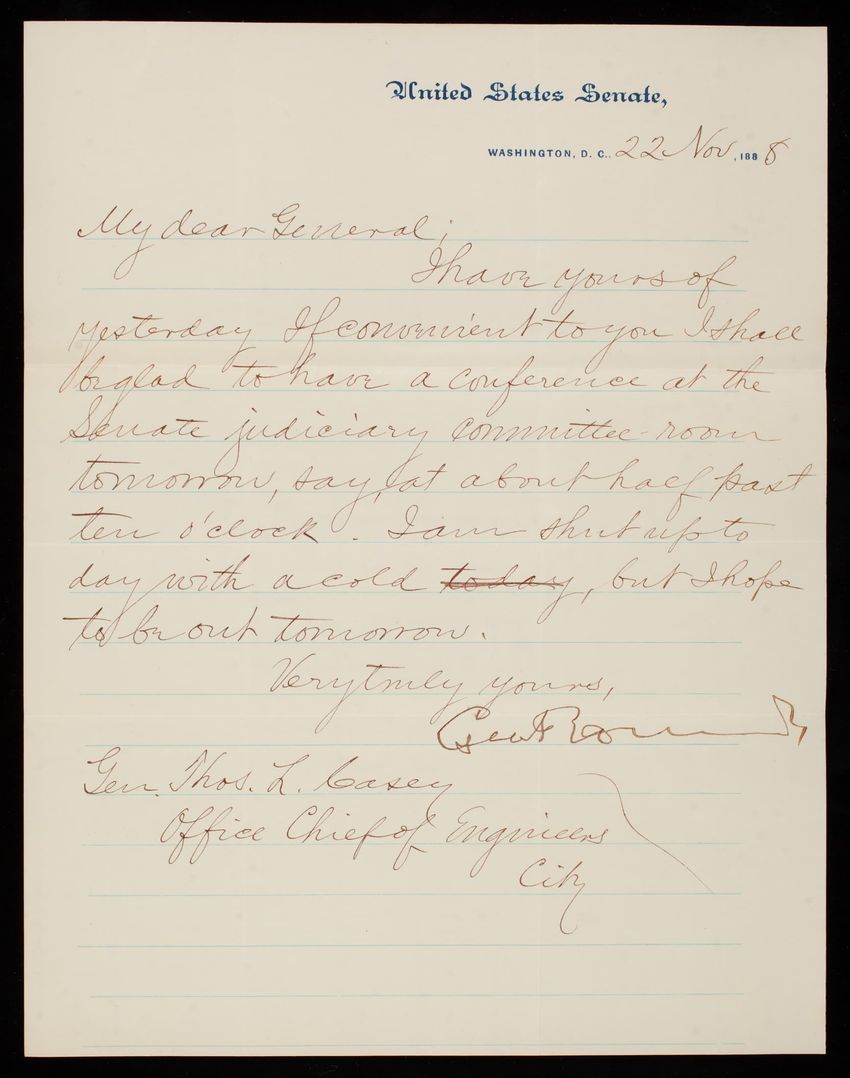 United States Senate,
WASHINGTON, D. C., 22 Nov, 1888
My dear General;
I have yours of
yesterday If convenient to you I shall
be glad to have a conference at the
Senate judiciary committee-room
tomorrow, say, at about half past
ten o'clock. I am shut up to
day with a cold today, but I hope
to be out tomorrow.
Very truly yours,
Geo F Edmunds
Gen. Thos. L. Casey
Office Chief of Engineers
City